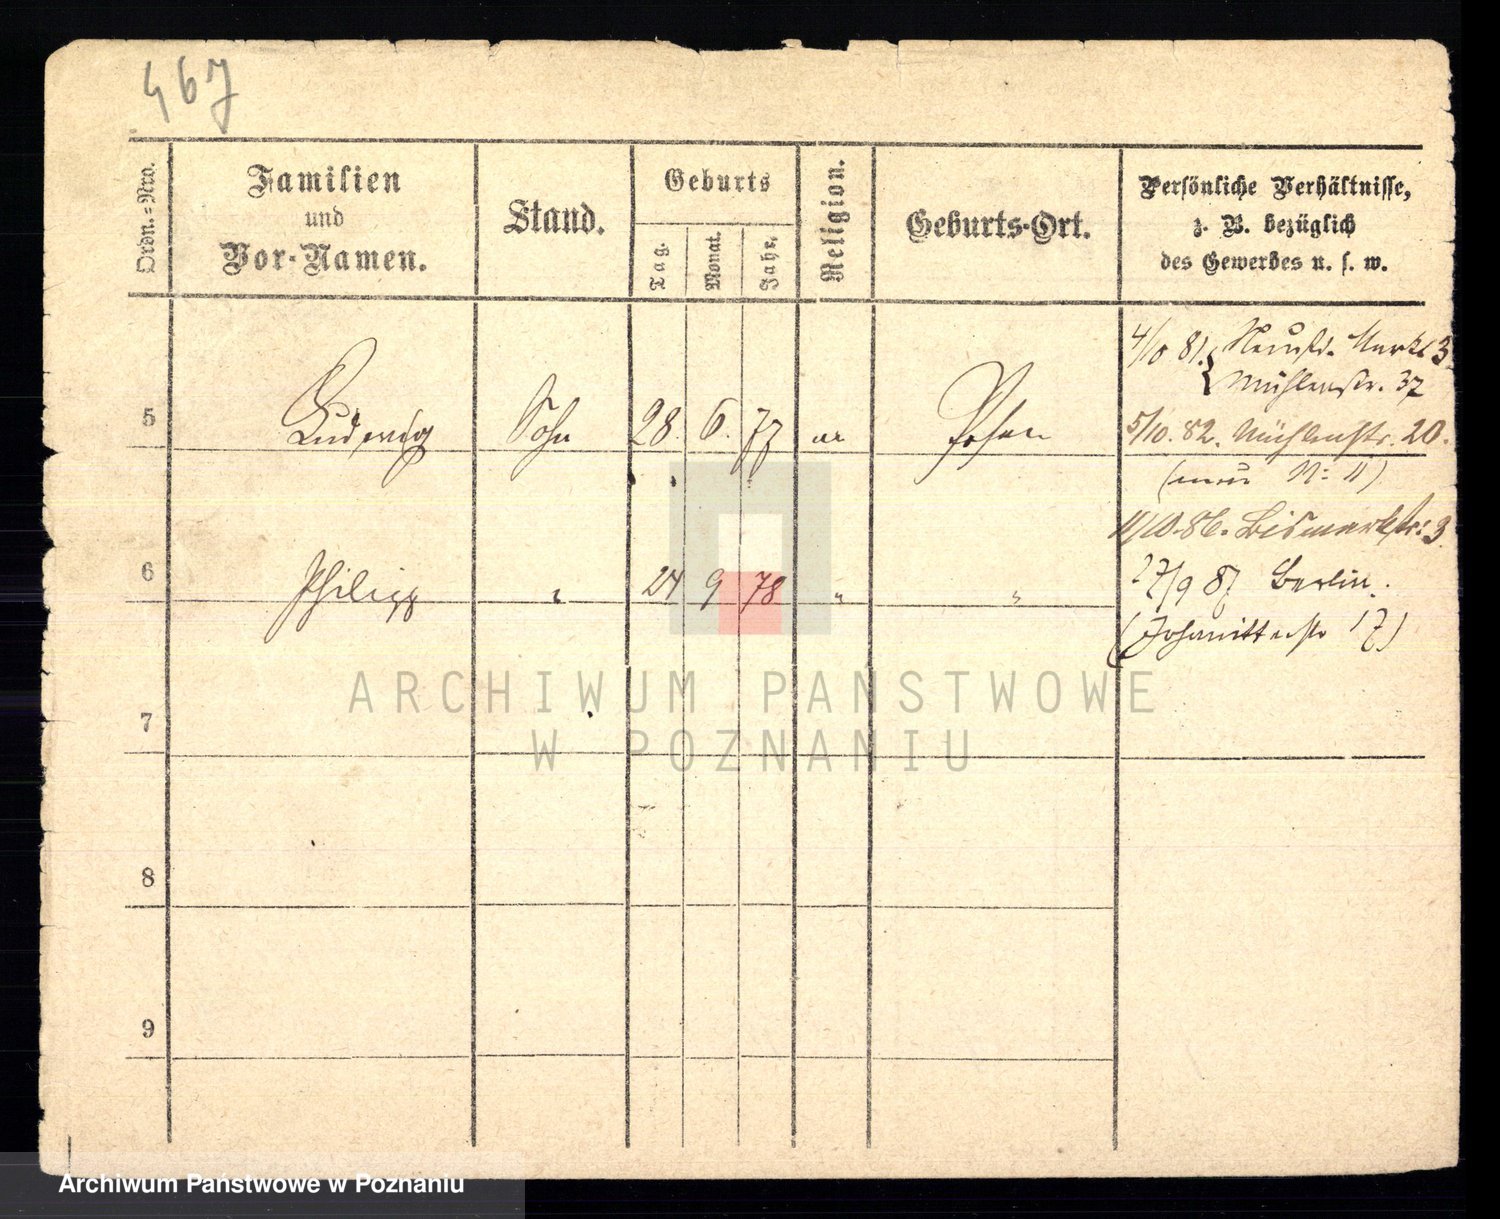 467
Ordn.=Nro.
Familien
und
Vor-Namen.
Stand.
Geburts
Tag.
Monat.
Jahr.
Religion.
Geburts-Ort.
Persönliche Verhältnisse,
z. B. bezüglich
des Gewerbes u. s. w.
4/10 81. Neust. Markt 3
Mühlenstr. 37
5 Ludwig Sohn 28. 6. 77 Posen
5/10. 82. Mühlenstr. 20.
(neue N: 11)
11/10.86. Bismarkstr. 3.
6 Philipp " 24 9 78 " "
27/9 87 Berlin.
(Johanitterstr 17)
7
8
9
ARCHIWUM PAŃSTWOWE
W POZNANIU
Archiwum Państwowe w Poznaniu